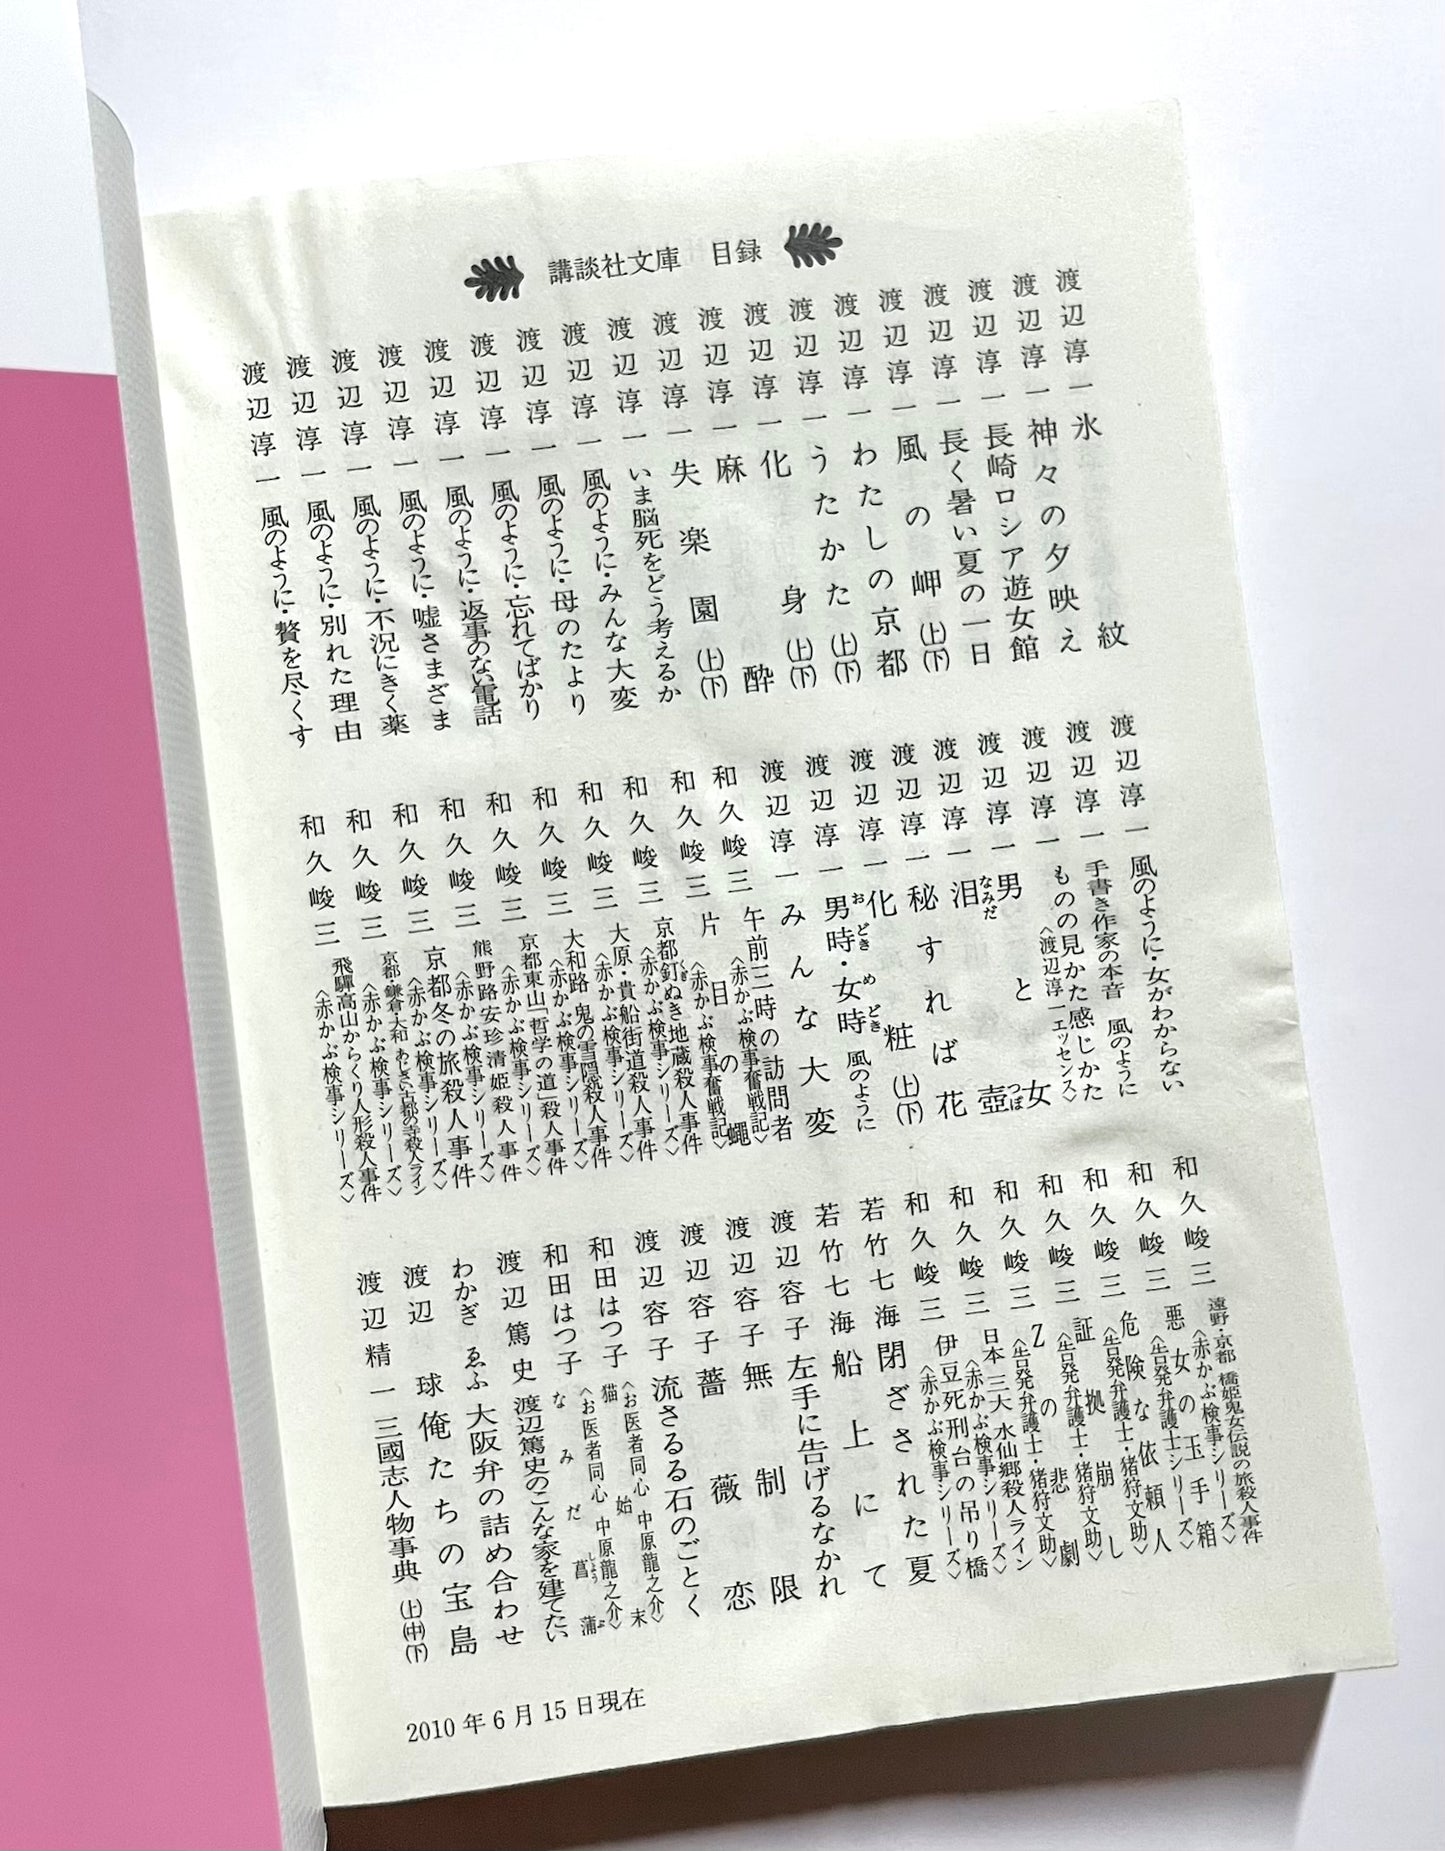 講談社文庫 目録
渡辺淳一 氷紋
渡辺淳一 神々の夕映え
渡辺淳一 長崎ロシア遊女館
渡辺淳一 長く暑い夏の一日
渡辺淳一 風の岬(上)(下)
渡辺淳一 わたしの京都
渡辺淳一 うたかた(上)(下)
渡辺淳一 化身(上)(下)
渡辺淳一 麻酔
渡辺淳一 失楽園(上)(下)
渡辺淳一 いま脳死をどう考えるか
渡辺淳一 風のように・みんな大変
渡辺淳一 風のように・母のたより
渡辺淳一 風のように・忘れてばかり
渡辺淳一 風のように・返事のない電話
渡辺淳一 風のように・嘘さまざま
渡辺淳一 風のように・不況にきく薬
渡辺淳一 風のように・別れた理由
渡辺淳一 風のように・贅を尽くす
渡辺淳一 風のように・女がわからない
渡辺淳一 手書き作家の本音 風のように
渡辺淳一 ものの見かた感じかた〈渡辺淳一エッセンス〉
渡辺淳一 男と女
渡辺淳一 泪壺
渡辺淳一 秘すれば花
渡辺淳一 化粧(上)(下)
渡辺淳一 男時・女時 風のように
渡辺淳一 みんな大変
和久峻三 午前三時の訪問者〈赤かぶ検事奮戦記〉
和久峻三 片目の蠅〈赤かぶ検事奮戦記〉
和久峻三 京都釘ぬき地蔵殺人事件〈赤かぶ検事シリーズ〉
和久峻三 大原・貴船街道殺人事件〈赤かぶ検事シリーズ〉
和久峻三 大和路 鬼の雪隠殺人事件〈赤かぶ検事シリーズ〉
和久峻三 京都東山「哲学の道」殺人事件〈赤かぶ検事シリーズ〉
和久峻三 熊野路安珍清姫殺人事件〈赤かぶ検事シリーズ〉
和久峻三 京都冬の旅殺人事件〈赤かぶ検事シリーズ〉
和久峻三 京都・鎌倉・大和 あじさい古都の寺殺人ライン〈赤かぶ検事シリーズ〉
和久峻三 飛驒高山からくり人形殺人事件〈赤かぶ検事シリーズ〉
和久峻三 遠野・京都 橋姫鬼女伝説の旅殺人事件〈赤かぶ検事シリーズ〉
和久峻三 悪女の玉手箱〈告発弁護士シリーズ〉
和久峻三 危険な依頼人〈告発弁護士・猪狩文助〉
和久峻三 証拠崩し〈告発弁護士・猪狩文助〉
和久峻三 Zの悲劇〈告発弁護士・猪狩文助〉
和久峻三 日本三大水仙郷殺人ライン〈赤かぶ検事シリーズ〉
和久峻三 伊豆死刑台の吊り橋〈赤かぶ検事シリーズ〉
若竹七海 閉ざされた夏
若竹七海 船上にて
渡辺容子 左手に告げるなかれ
渡辺容子 無制限
渡辺容子 薔薇恋
渡辺容子 流さるる石のごとく
和田はつ子 猫始末〈お医者同心 中原龍之介〉
和田はつ子 なみだ菖蒲〈お医者同心 中原龍之介〉
渡辺篤史 渡辺篤史のこんな家を建てたい
わかぎゑふ 大阪弁の詰め合わせ
渡辺球 俺たちの宝島
渡辺精一 三國志人物事典(上)(中)(下)
2010年6月15日現在